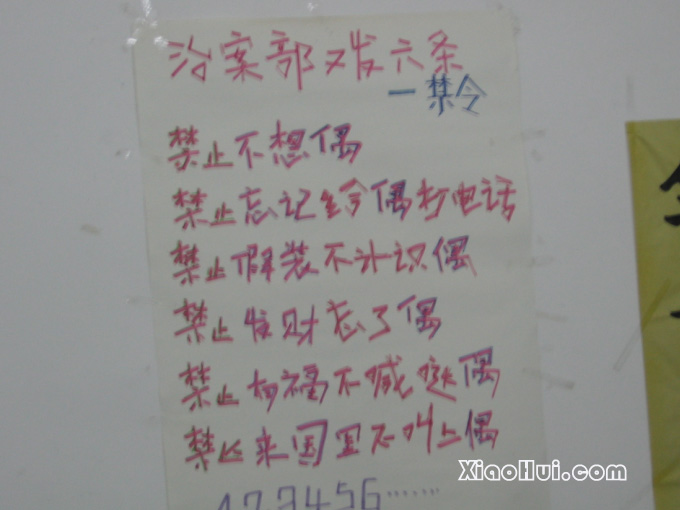 治案部又发六条
一禁令
禁止不想偶
禁止忘记给偶打电话
禁止假装不认识偶
禁止发财忘了偶
禁止不偶
禁止来国不叫上偶
123456……
XiaoHui.com